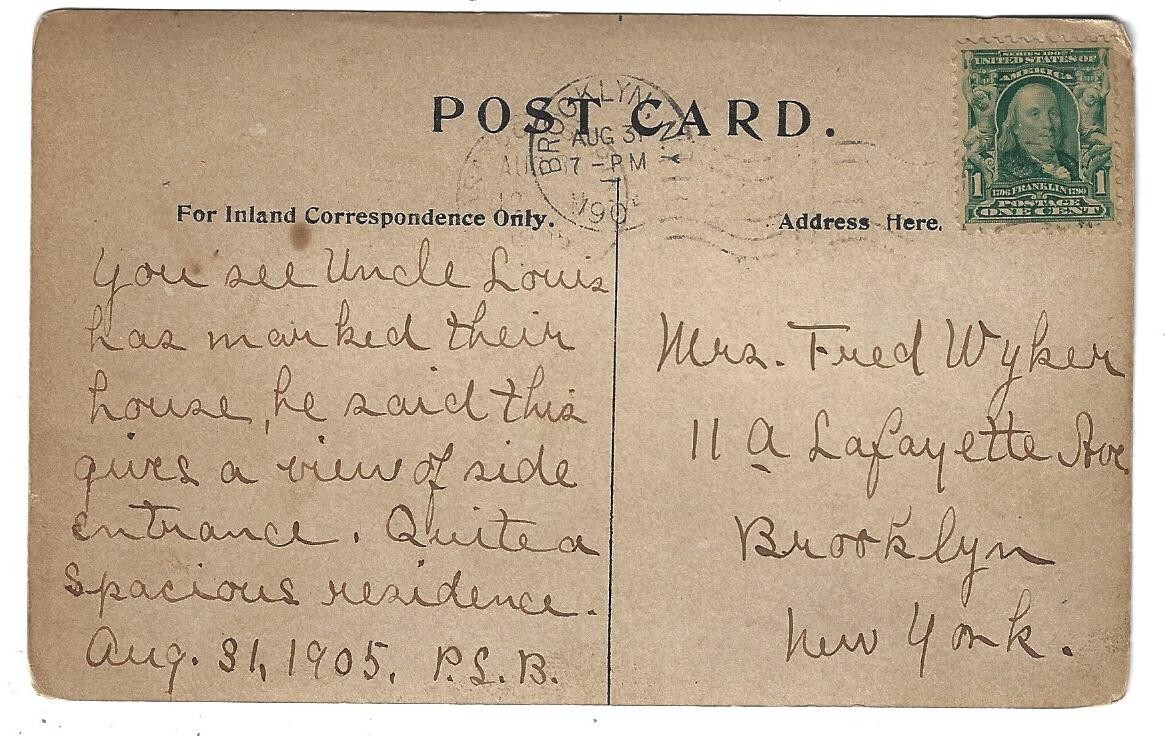 SERIES 1902
UNITED STATES OF
AMERICA
1 1
1706 FRANKLIN 1790
POSTAGE
ONE CENT
POST CARD.
BROOKLYN, N.Y.
AUG 31
7 - PM
190
For Inland Correspondence Only.
Address Here.
You see Uncle Louis
has marked their
house, he said this
gives a view of side
entrance. Quite a
spacious residence.
Aug. 31, 1905. P.S.B.
Mrs. Fred Wyker
11 a Lafayette Ave
Brooklyn
New York.